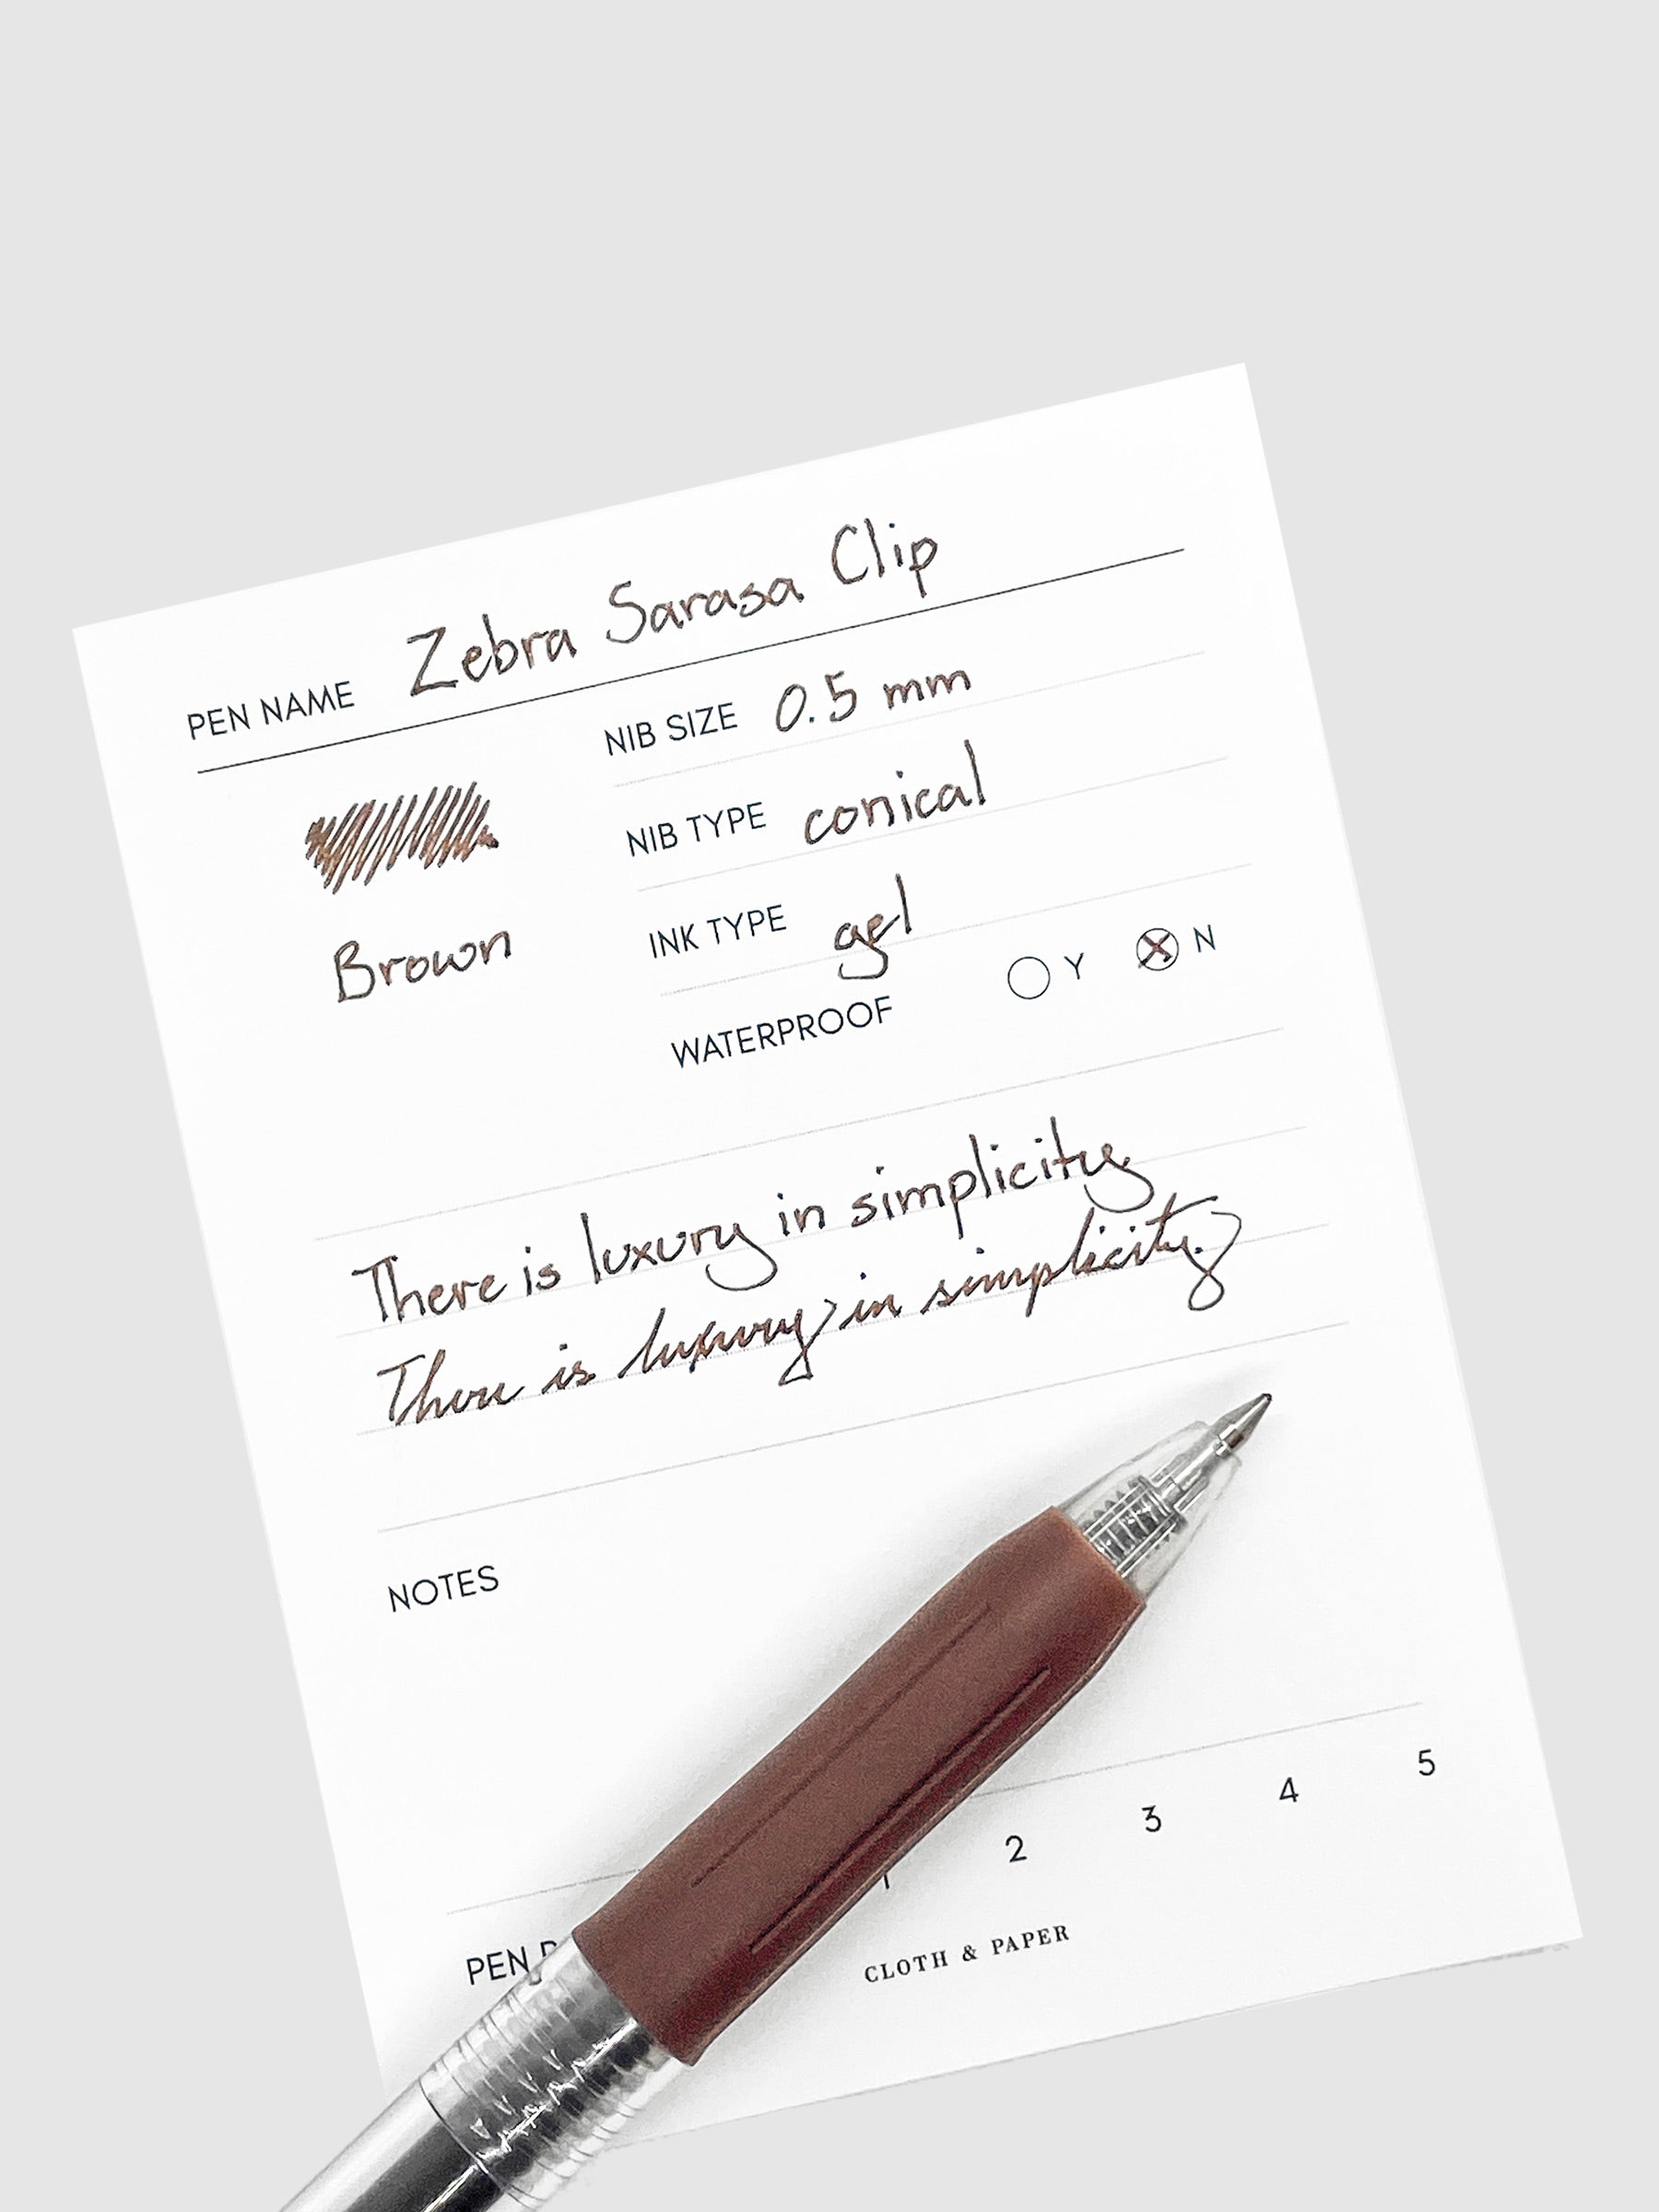 PEN NAME Zebra Sarasa Clip
NIB SIZE 0.5 mm
NIB TYPE conical
INK TYPE gel
Brown
WATERPROOF Y N
There is luxury in simplicity
There is luxury in simplicity.
NOTES
PEN 1 2 3 4 5
CLOTH & PAPER